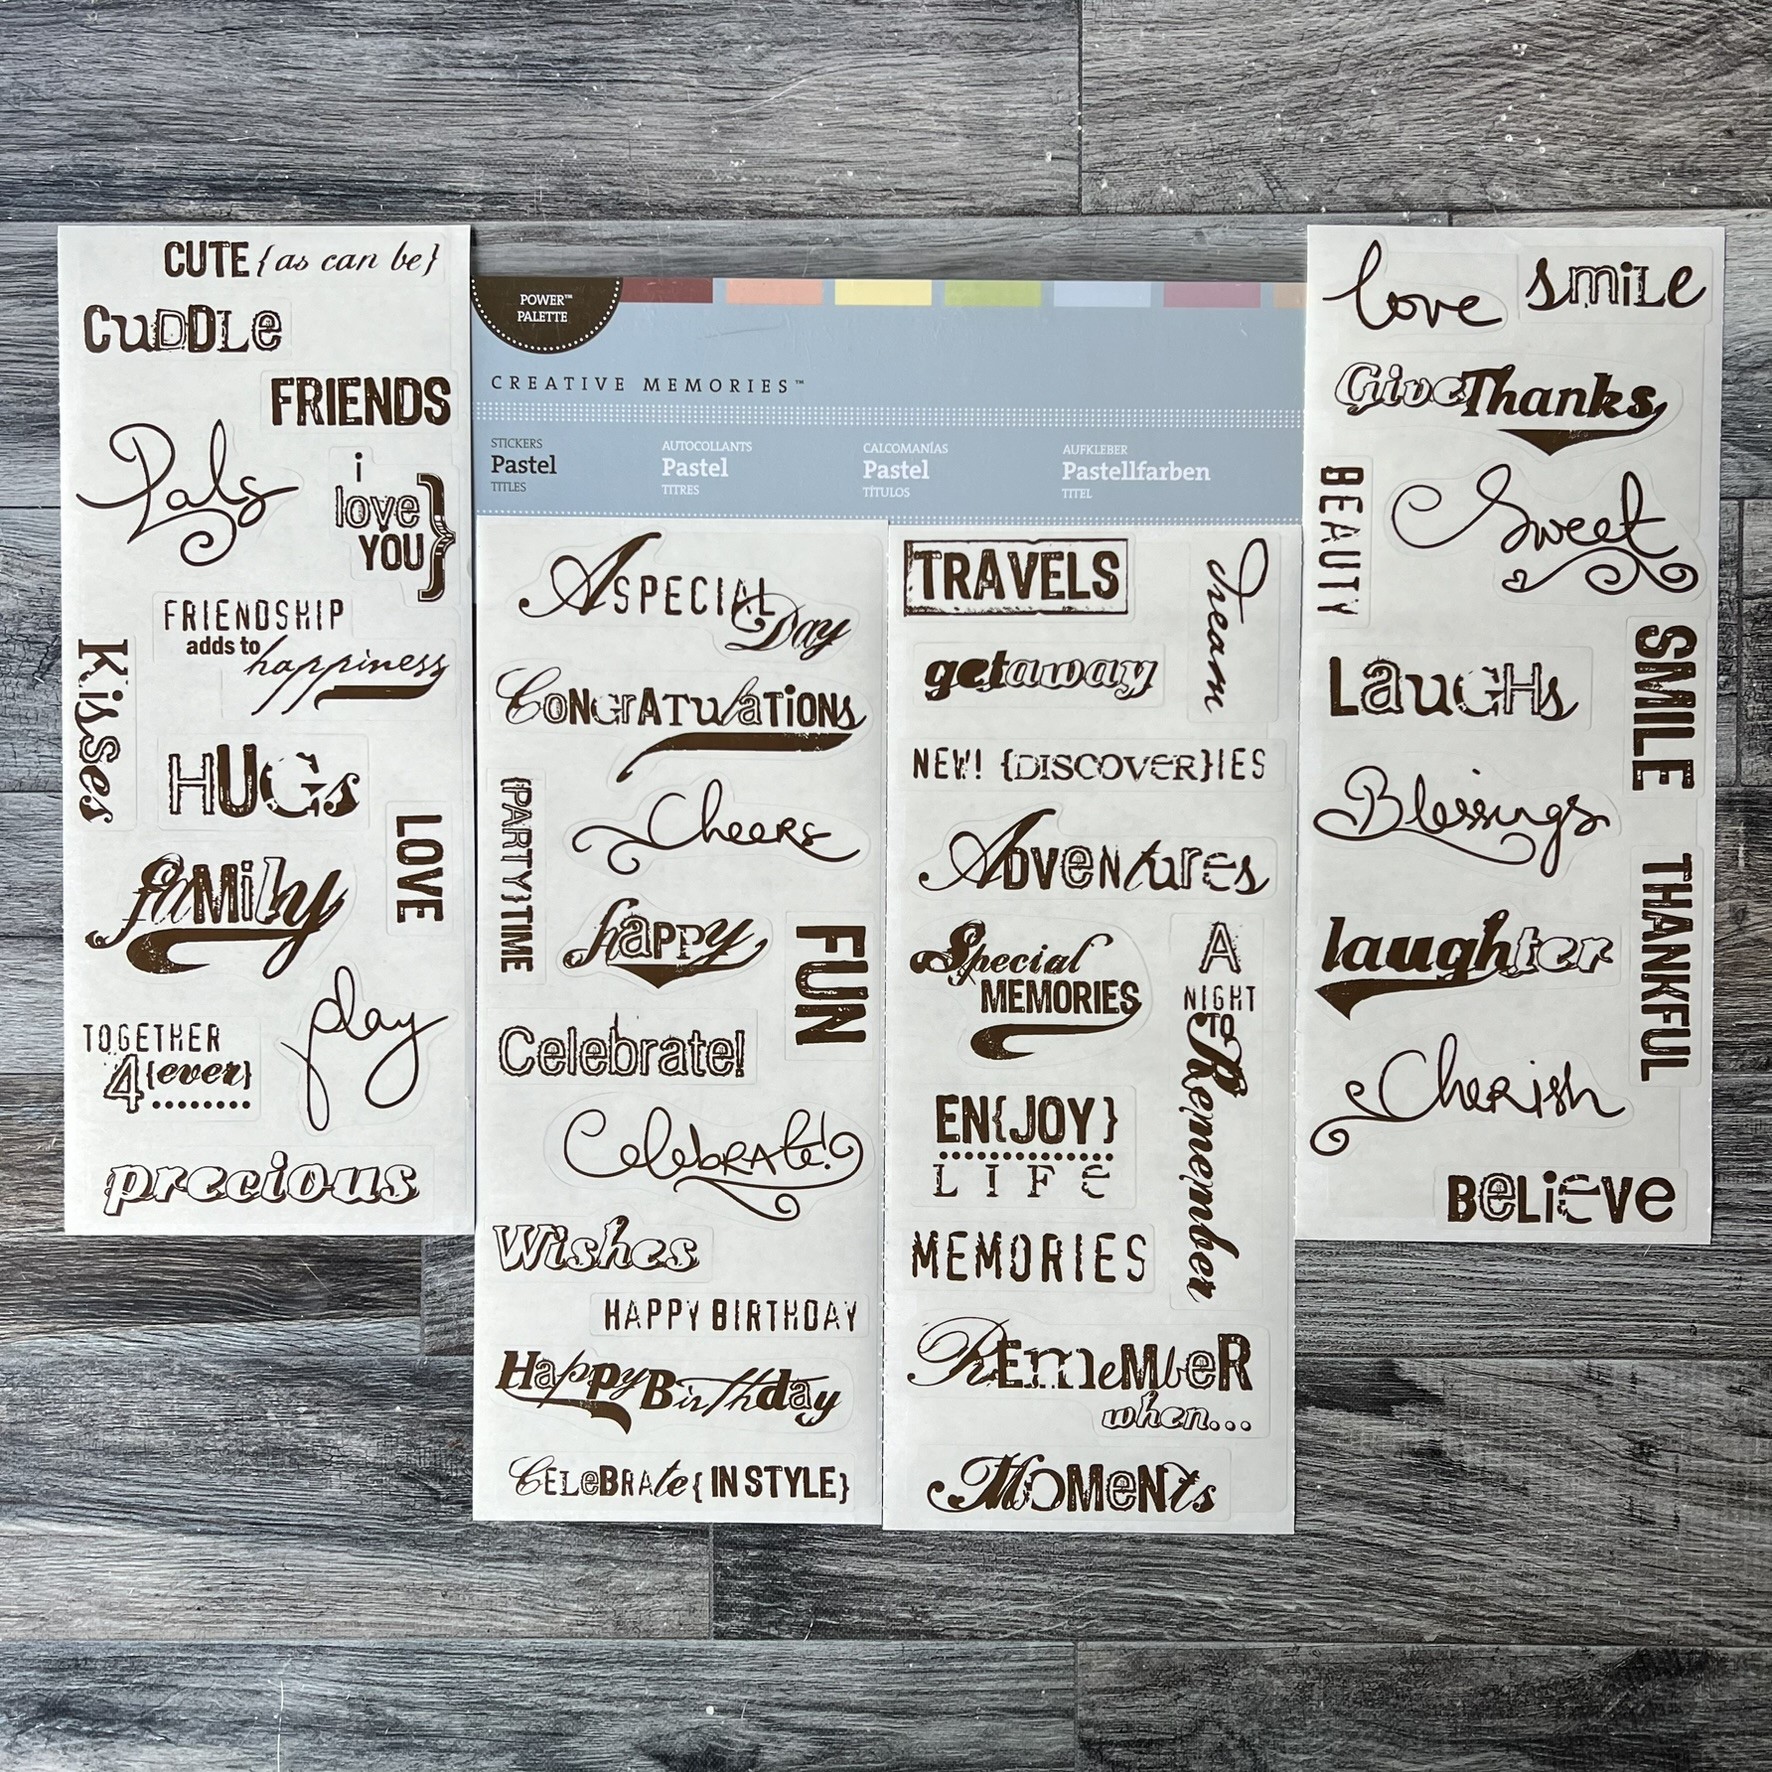 CUTE {as can be}
CUDDLe
FRIENDS
Pals
i
love
YOU}
FRIENDSHIP
adds to happiness
Kisses
HUGs
LOVE
faMily
play
TOGETHER
4{ever}
precious
POWER™
PALETTE
CREATIVE MEMORIES™
STICKERS
Pastel
TITLES
AUTOCOLLANTS
Pastel
TITRES
CALCOMANÍAS
Pastel
TÍTULOS
AUFKLEBER
Pastellfarben
TITEL
A SPECIAL
Day
CoNGrATulaTiONs
{PARTY}TIME
Cheers
happy
FUN
Celebrate!
CelebrAte!
Wishes
HAPPY BIRTHDAY
Happy Birthday
CELeBRAte{ IN STYLE}
TRAVELS
Dream
getaway
NEW! {DISCOVeR}IES
ADVeNtures
Special
MEMORIES
A
NIGHT
TO
Remember
EN{JOY}
LIFe
MEMORIES
REmeMbeR
when...
MOMeNts
love
smiLe
Give Thanks
BEAUTY
Sweet
LauGHs
SMILE
Blessings
THANKFUL
laughter
CheRish
BeLieVe